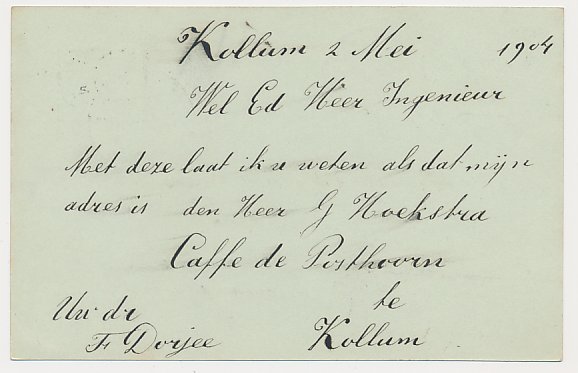 Kollum 2 Mei 1904
Wel Ed Heer Ingenieur
Met deze laat ik u weten als dat mijn
adres is den Heer G Hoekstra
Caffe de Posthoorn
te
Uw dr Kollum
F Dorjee